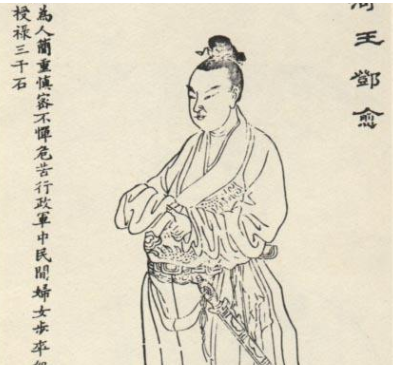 王鄧愈
為人簡重慎密不憚危苦行政軍中民間婦女步卒
授祿三千石